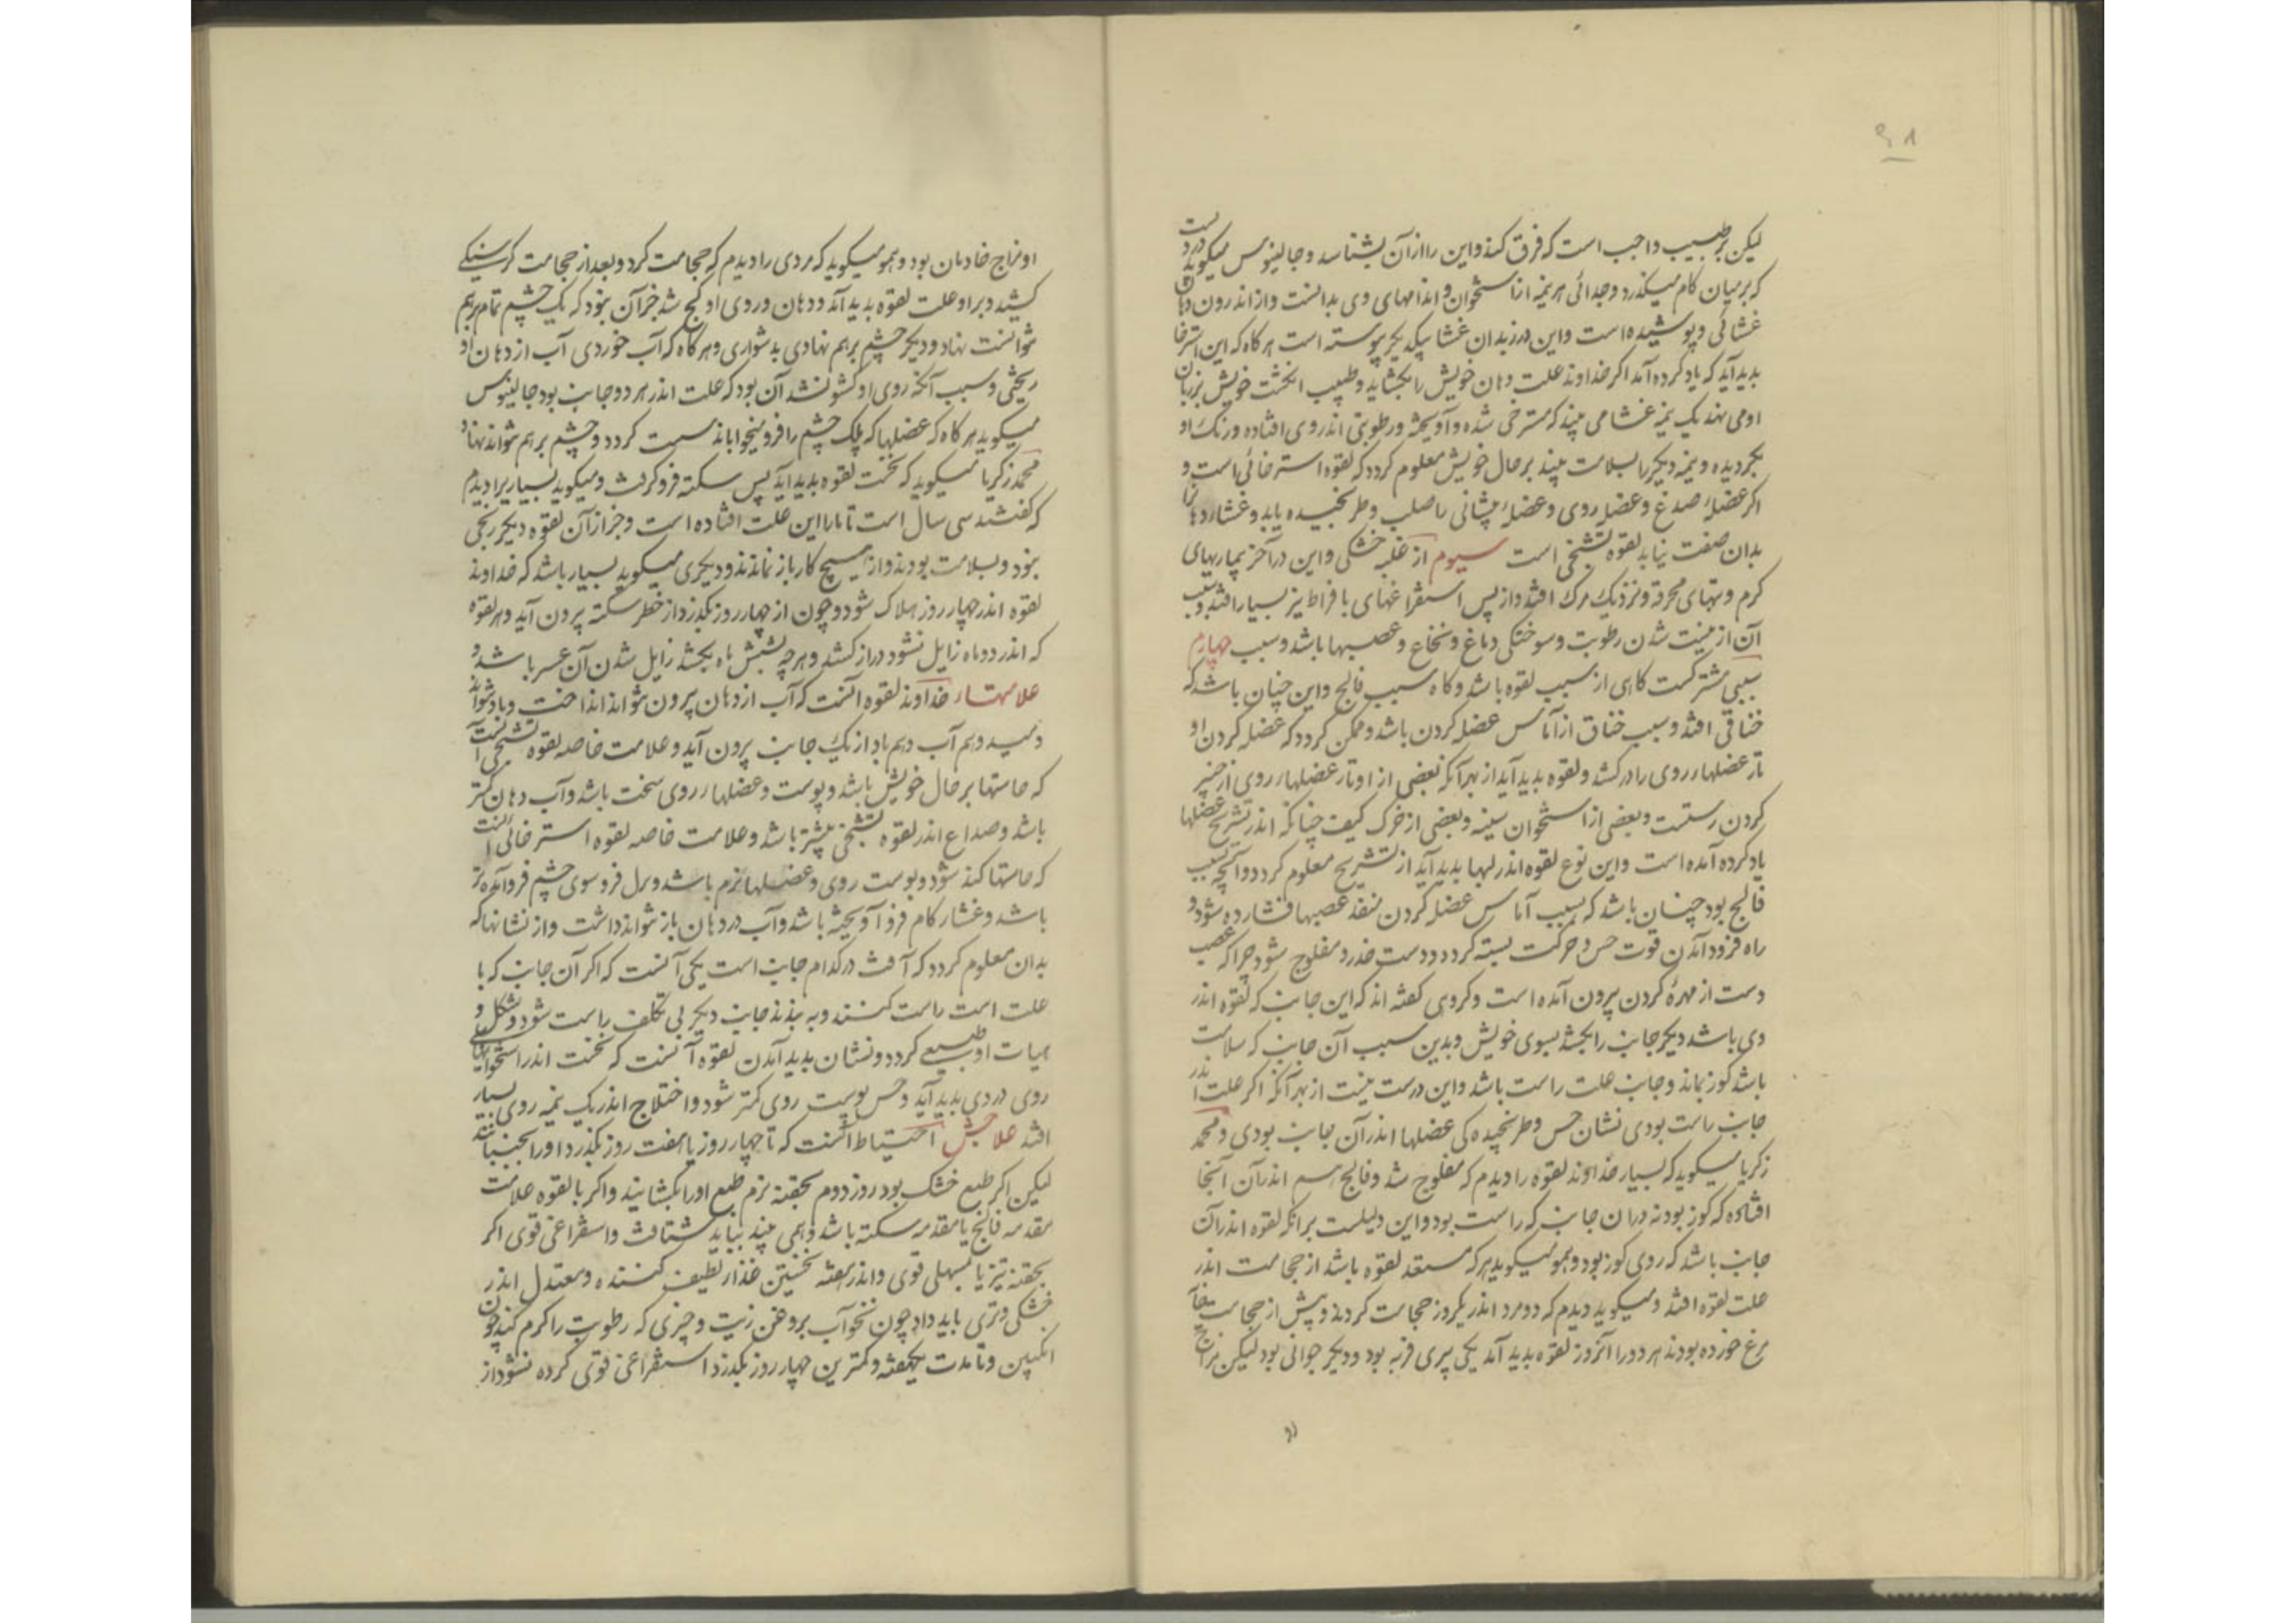 لیکن بر طبیب واجب است که فرق کند و این را از آن بشناسد و جالینوس میکوید درزیست
که بر میان کام میکذرد و جدائی هر نیمه از استخوان و اندامهای وی بدانست و از اندرون دهان
غشائی و پوشیده است و این درز بدان غشا بیکدیکر پیوسته است هر کاه که این استرخا
بدید آید که یاد کرده آمد اکر خداوند علت دهان خویش را بکشاید و طبیب انکشت خویش بر زبان
او می نهد یک نیمه غشا می بیند که مسترخی شده و آویخته و رطوبتی اندر وی افتاده و رنک او
بکردیده و نیمه دیکر را بسلامت بیند بر حال خویش معلوم کردد که لقوه استرخائی است و
اکر عضلهٔ صدغ و عضل روی و عضلهٔ پیشانی را صلب و طرنجیده یابد و غشاء دهان را
بدان صفت نیابد لقوه تشنجی است سیوم از غلبه خشکی و این در آخر بیماریهای
کرم و تبهای محرقه و نزدیک مرک افتد و از پس استفراغهای با فراط نیز بسیار افتد و سبب
آن از نیست شدن رطوبت و سوختکی دماغ و نخاع و عصبها باشد و سبب چهارم
سببی مشترکست کاهی از سبب لقوه باشد و کاه سبب فالج و این چنان باشد که
خناقی افتد و سبب خناق از آماس عضله کردن باشد و ممکن کردد که عضله کردن او
تار عضلهاء روی را درکشد و لقوه بدید آید از بهر آنکه بعضی از اوتار عضلهاء روی از چنبر
کردن رستست و بعضی از استخوان سینه و بعضی از خرک کیف چنانکه اندر تشریح عضلها
یاد کرده آمده است و این نوع لقوه اندر لبها بدید آید از تشریح معلوم کردد و آنچه سبب
فالج بود چنان باشد که بسبب آماس عضله کردن منفذ عصبها فشارده شود و
راه فرود آمدن قوت حس و حرکت بسته کردد و دست خدر و مفلوج شود چرا که عصب
دست از مهرهٔ کردن بیرون آمده است و کروهی کفته اند که این جانب که لقوه اندر
وی باشد دیکر جانب را بکشد بسوی خویش و بدین سبب آن جانب که سلامت
باشد کوز نماند و جانب علت راست باشد و این درست نیست از بهر آنکه اکر علت اندر
جانب راست بودی نشان حس و طرنجیده کی عضلها اندر آن جانب بودی و محمد
زکریا میکوید که بسیار خداوند لقوه را دیدم که مفلوج شد و فالج هم اندر آن آنجا
افتاده که کوز بود نه در آن جانب که راست بود و این دلیلست بر آنکه لقوه اندر آن
جانب باشد که روی کوز بود و همو میکوید هر که مستعد لقوه باشد از حجامت اندر
علت لقوه افتد و میکوید دیدم که دو مرد اندر یکروز حجامت کردند و پیش از حجامت
مرغ خورده بودند هر دو را آنروز لقوه بدید آمد یکی پیری فربه بود و دیکر جوانی بود لیکن مزاج
او مزاج خادمان بود و همو میکوید که مردی را دیدم که حجامت کرد و بعد از حجامت کرسنکی
کشید و بر او علت لقوه بدید آمد و دهان و روی او کج شد جز آن نبود که یک چشم تمام برهم
توانست نهاد و دیکر چشم برهم نهادی بدشواری و هر کاه که آب خوردی آب از دهان او
ریختی و سبب آنکه روی او کشو نشد آن بود که علت اندر هر دو جانب بود جالینوس
میکوید هر کاه که عضلها که پلک چشم را فرو میخواباند سست کردد و چشم برهم نتواند نهاد و
محمد زکریا میکوید که نخست لقوه بدید آید پس سکته فرو کرفت و میکوید بسیار را دیدم
که کفتند سی سال است تا ما را این علت افتاده است و جز از آن لقوه دیکر رنجی
نبود و بسلامت بودند و از هیچ کار باز نماندند و دیکری میکوید بسیار باشد که خداوند
لقوه اندر چهار روز هلاک شود و چون از چهار روز بکذرد از خطر سکته بیرون آید و هر لقوه
که اندر دو ماه زایل نشود دراز کشد و هر چه شش ماه بکشد زایل شدن آن عسر باشد و
علامتهاء خداوند لقوه آنست که آب از دهان بیرون نتواند انداخت و باد نتواند
دمید و هم آب و هم باد از یک جانب بیرون آید و علامت خاصه لقوه تشنجی آنست
که حاستها بر حال خویش باشد و پوست و عضلهاء روی سخت باشد و آب دهان کمتر
باشد و صداع اندر لقوه تشنجی بیشتر باشد و علامت خاصه لقوه استرخائی آنست
که حاستها کند شود و پوست روی و عضلها نرم باشد و پلک فرو سوی چشم فرو آمده تر
باشد و غشاء کام فرو آویخته باشد و آب در دهان باز نتواند داشت و از نشانها که
بدان معلوم کردد که آفت در کدام جانب است یکی آنست که اکر آن جانب که با
علت است راست کنند و به بندند جانب دیکر بی تکلف راست شود و بشکل و
هیات او طبیعی کردد و نشان بدید آمدن لقوه آنست که نخست اندر استخوانهای
روی دردی بدید آید و حس پوست روی کمتر شود و اختلاج اندر یک نیمه روی بسیار
افتد علاجش احتیاط آنست که تا چهار روز یا هفت روز بکذرد او را نجنبانند
لیکن اکر طبع خشک بود روز دوم بحقنه نرم طبع او را بکشایند و اکر با لقوه علامت
مقدمه فالج یا مقدمه سکته باشد و همی بیند نباید شتافت و استفراغی قوی اکر
بحقنه تیز یا مسهلی قوی و اندر هفته نخستین غذاء لطیف کننده و معتدل اندر
خشکی و تری باید داد چون نخودآب بروغن زیت و چیزی که رطوبت را کرم کند چون
انکبین و تا مدت یکهفته و کمترین چهار روز بکذرد استفراغی قوی کرده نشود از